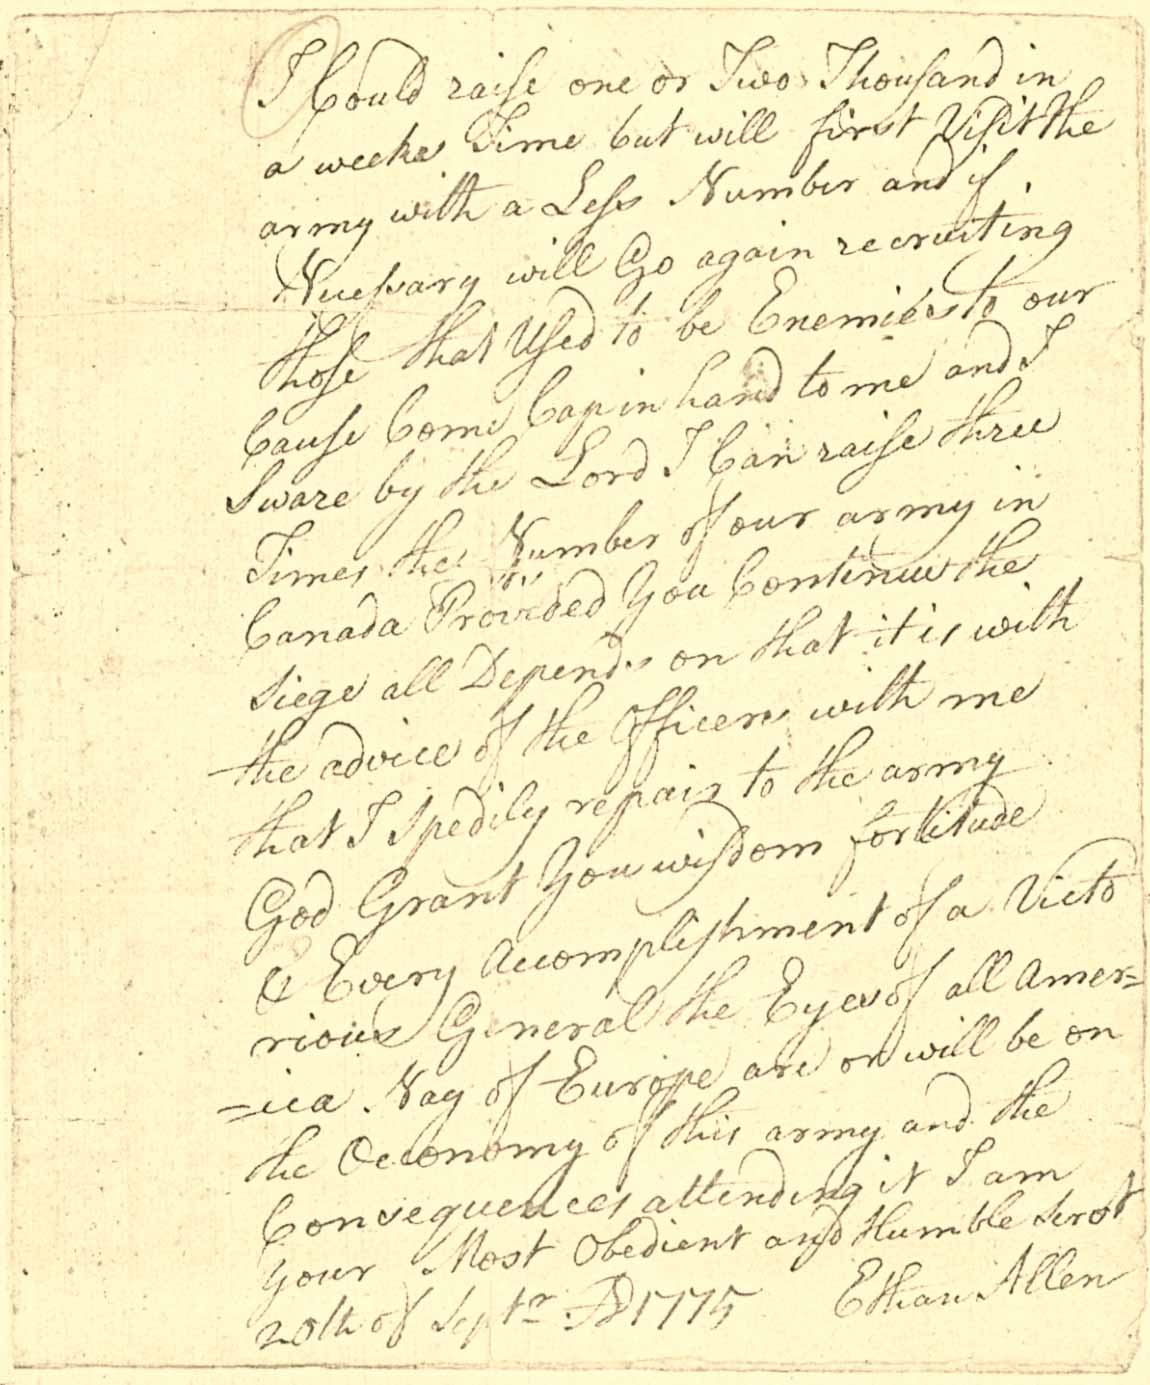 I Could raise one or Two Thousand in
a weeks Time but will first Visit the
army with a Less Number and if
Necessary will Go again recruiting
those that Used to be Enemies to our
Cause Come Cap in hand to me and I
Sware by the Lord I Can raise three
Times the Number of our army in
Canada Provided You Continue the
Siege all Depends on that it is with
the advice of the Officers with me
that I Spedily repair to the army
God Grant You wisdom fortitude
& Every Accomplishment of a Victo
rious General the Eyes of all Amer=
=ica. Nay of Europe are or will be on
the Oeconomy of this army and the
Consequences attending it I am
Your Most Obedient and Humble Servt
20th of Septr. AD 1775 Ethan Allen